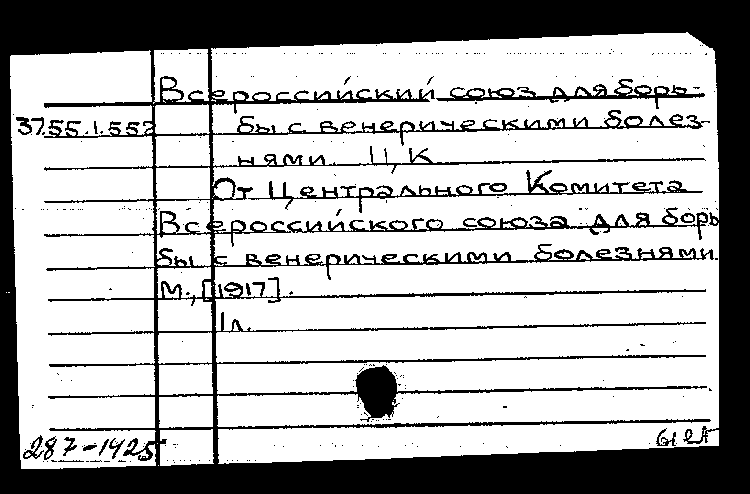 Всероссийский союз для борь-
37.55.1.552 бы с венерическими болез-
нями. Ц, К
От Центрального Комитета
Всероссийского союза для борь
бы с венерическими болезнями
М., [1917].
1 л.
287-1425